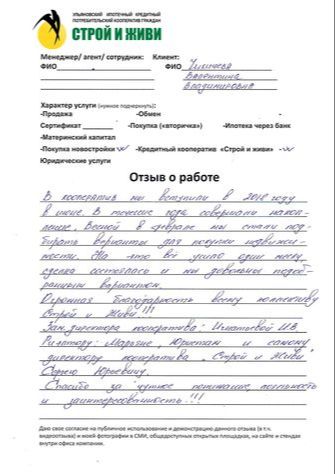 УЛЬЯНОВСКИЙ ИПОТЕЧНЫЙ КРЕДИТНЫЙ
ПОТРЕБИТЕЛЬСКИЙ КООПЕРАТИВ ГРАЖДАН
СТРОЙ И ЖИВИ
Менеджер/ агент/ сотрудник: Клиент:
ФИО ФИО
Валентина
Владимировна
Характер услуги (нужное подчеркнуть):
-Продажа -Обмен -
Сертификат -Покупка («вторичка») -Ипотека через банк
-Материнский капитал
-Покупка новостройки -Кредитный кооператив «Строй и живи» -
Юридические услуги
Отзыв о работе
В кооператив мы вступили в 2018 году
в июне. В течение года совершали накоп-
ление. Весной в феврале мы стали под-
бирать варианты для покупки недвижи-
мости. На это всё ушло один месяц,
сделка состоялась и мы довольны подоб-
ранным вариантом.
Огромная благодарность всему коллективу
Строй и Живи!!!
Зам. директора кооператива: Игнатьевой И.В.
Риэлтору: Марьяне, Юристам и самому
директору кооператива „Строй и Живи"
Сергею Юрьевичу.
Спасибо за чуткое понимание, лояльность
и заинтересованность!!!
Даю свое согласие на публичное использование и демонстрацию данного отзыва (в т.ч.
видеоотзыва) и моей фотографии в СМИ, общедоступных открытых площадках, на сайте и стендах
внутри офиса компании.